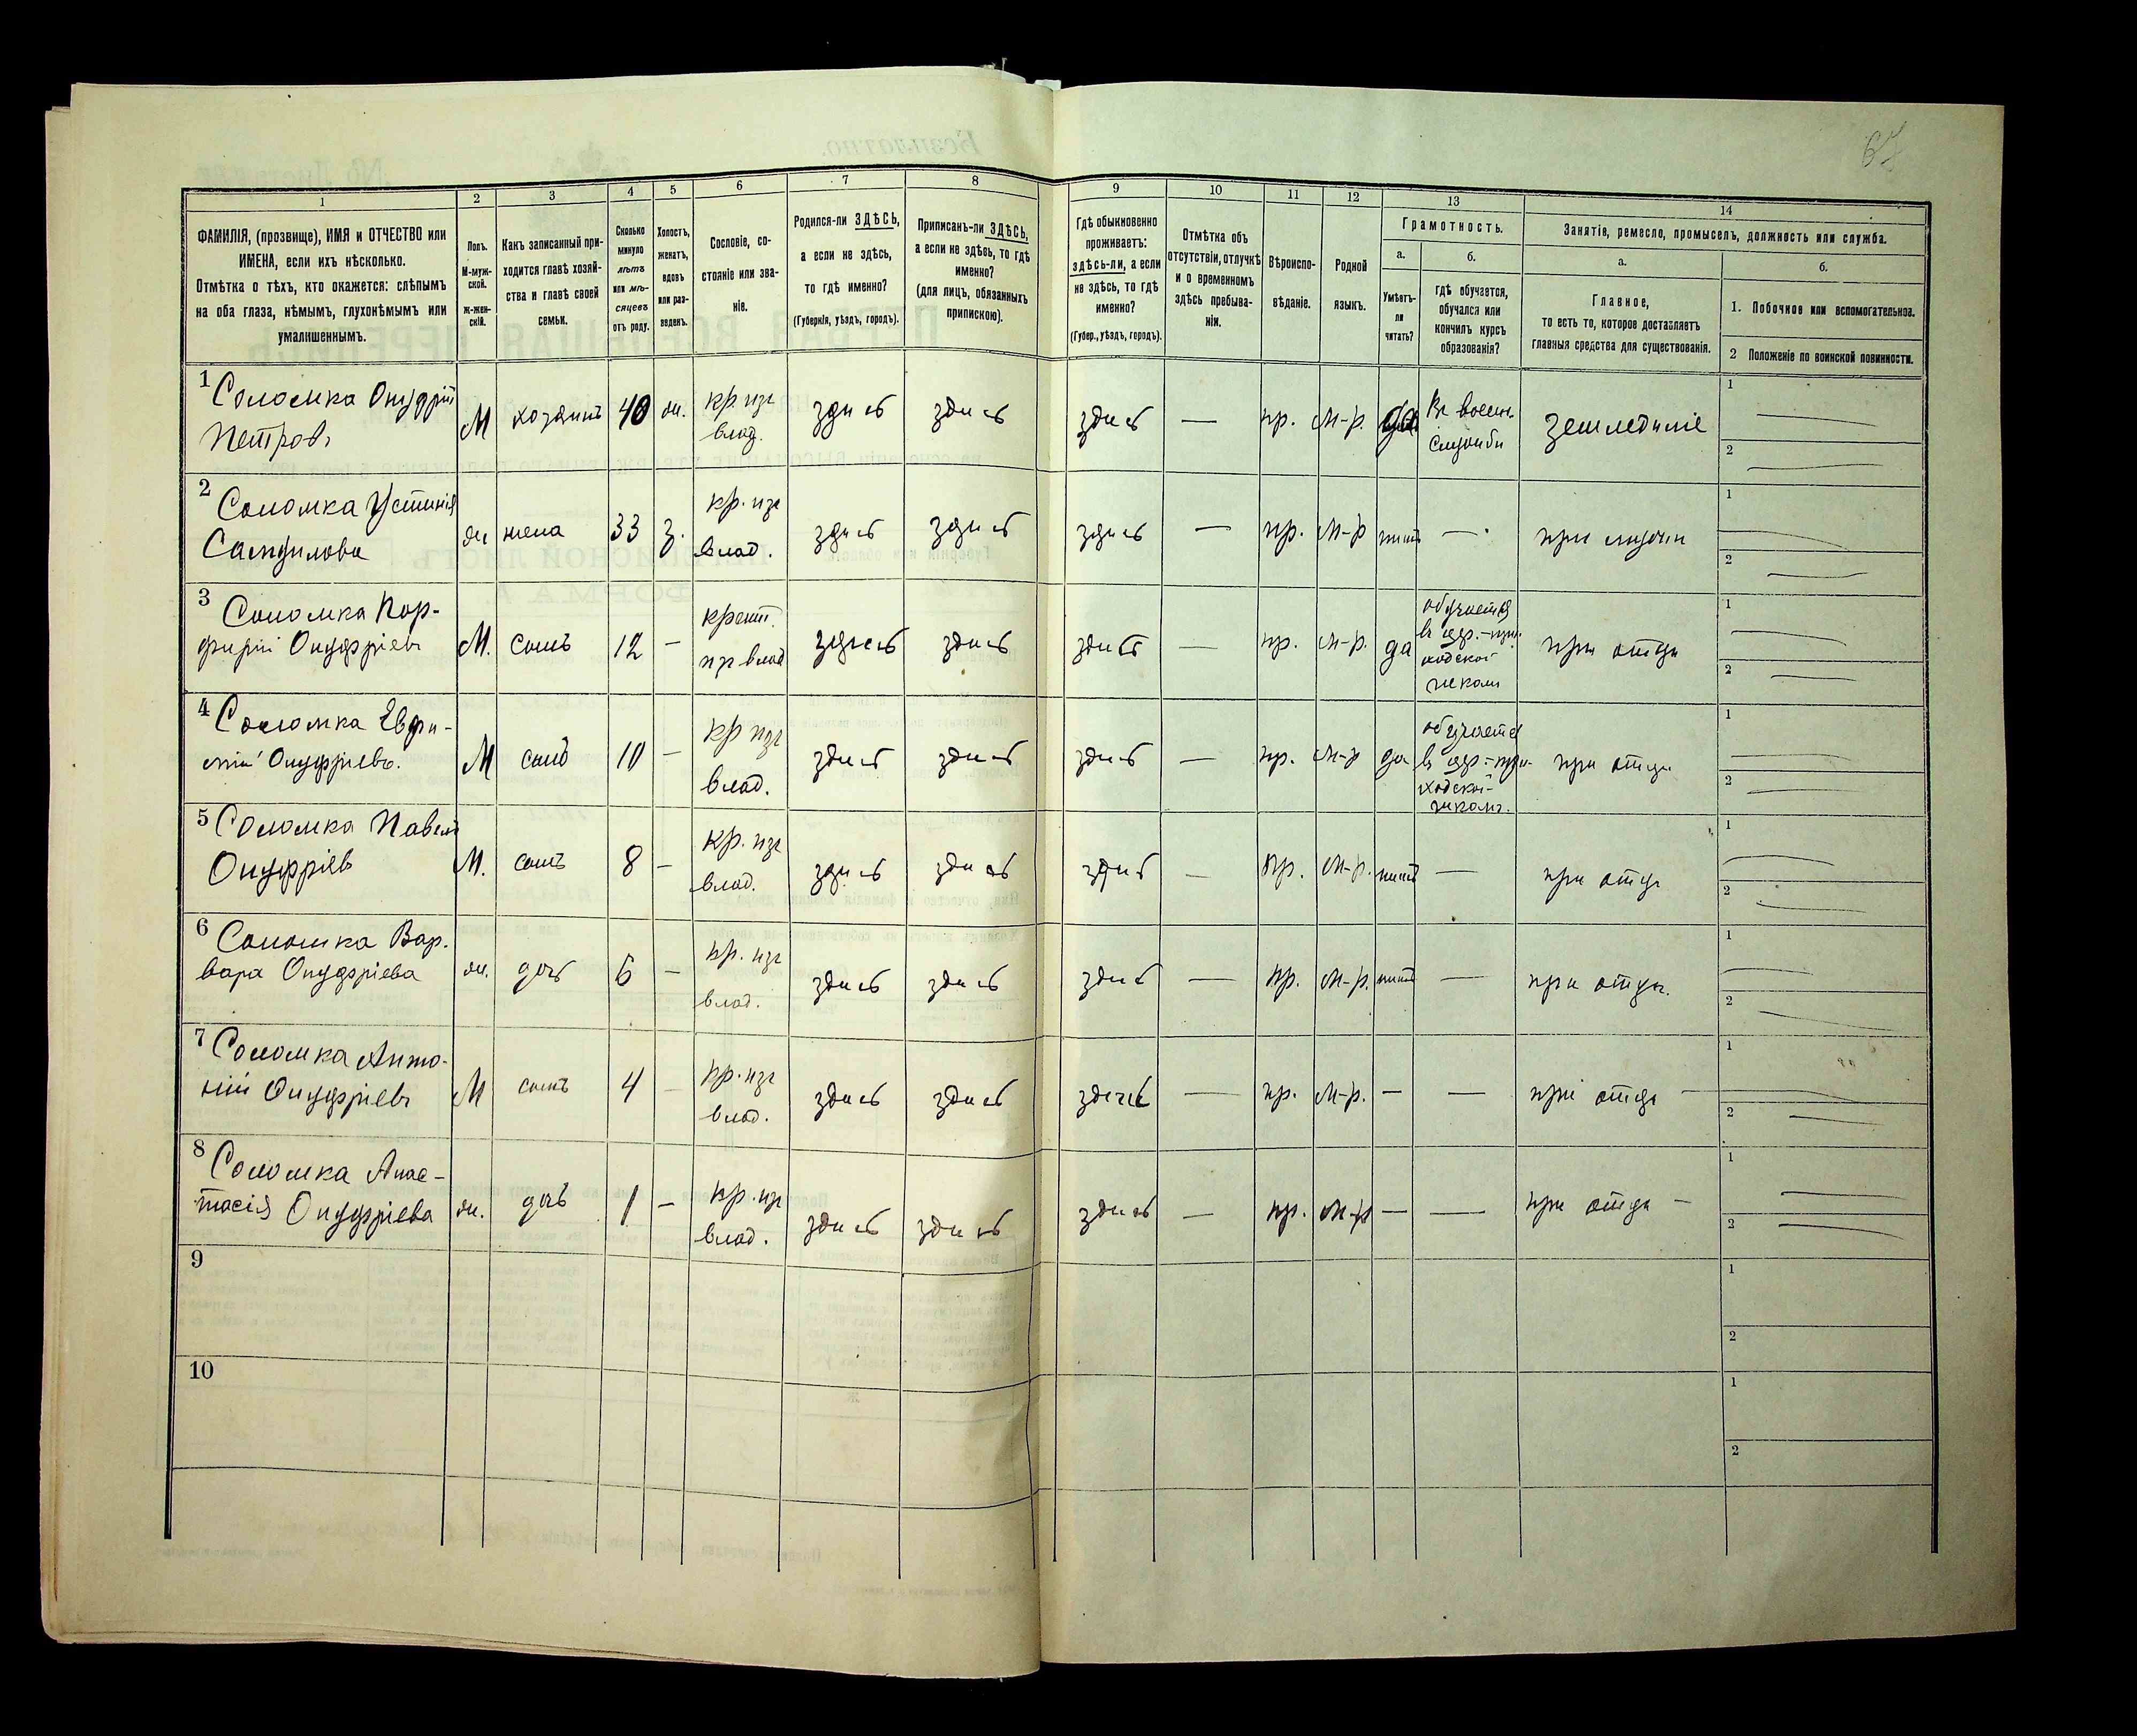 67
1 2 3 4 5 6 7 8 9 10 11 12 13 14
ФАМИЛІЯ, (прозвище), ИМЯ и ОТЧЕСТВО или
ИМЕНА, если ихъ нѣсколько.
Отмѣтка о тѣхъ, кто окажется: слѣпымъ
на оба глаза, нѣмымъ, глухонѣмымъ или
умалишеннымъ.
Полъ.
М-муж-
ской.
ж-жен-
скій.
Какъ записанный при-
ходится главѣ хозяй-
ства и главѣ своей
семьи.
Сколько
минуло
лѣтъ
или мѣ-
сяцевъ
отъ роду.
Холостъ,
женатъ,
вдовъ
или раз-
веденъ.
Сословіе, со-
стояніе или зва-
ніе.
Родился-ли ЗДѢСЬ,
а если не здѣсь,
то гдѣ именно?
(Губернія, уѣздъ, городъ).
Приписанъ-ли ЗДѢСЬ,
а если не здѣсь, то гдѣ
именно?
(для лицъ, обязанныхъ
припискою).
Гдѣ обыкновенно
проживаетъ:
здѣсь-ли, а если
не здѣсь, то гдѣ
именно?
(Губер., уѣздъ, городъ).
Отмѣтка объ
отсутствіи, отлучкѣ
и о временномъ
здѣсь пребыва-
ніи.
Вѣроиспо-
вѣданіе.
Родной
языкъ.
Грамотность.
а.
Умѣетъ-
ли
читать?
б.
гдѣ обучается,
обучался или
кончилъ курсъ
образованія?
Занятія, ремесло, промыселъ, должность или служба.
а.
Главное,
то есть то, которое доставляетъ
главныя средства для существованія.
б.
1. Побочное или вспомогательное.
2 Положеніе по воинской повинности.
1 Соломка Онуфрій
Петровъ
М хозяинъ 40 ж. кр. изъ
влад.
здѣсь здѣсь здѣсь — пр. М-р. да
Въ воен.
службѣ
земледѣліе
1
2
2 Соломка Устинія
Самуилова
ж жена 33 з. кр. изъ
влад.
здѣсь здѣсь здѣсь — пр. М-р нѣтъ — при мужѣ
1
2
3 Соломка Пор-
фирій Онуфріевъ
М. сынъ 12 — крест.
из влад
здѣсь здѣсь здѣсь — пр. М-р. да
обучается
въ цер.-при-
ходской
школѣ
при отцѣ
1
2
4 Соломка Евфи-
мій Онуфріевъ.
М сынъ 10 — кр изъ
влад.
здѣсь здѣсь здѣсь — пр. М-р да
обучается
въ цер.-при-
ходской
школѣ.
при отцѣ
1
2
5 Соломка Павелъ
Онуфріев
М. сынъ 8 — кр. изъ
влад.
здѣсь здѣсь здѣсь — пр. М-р. нѣтъ — при отцѣ
1
2
6 Соломка Вар.
вара Онуфріева
ж. дочь 6 — кр. изъ
влад.
здѣсь здѣсь здѣсь — пр. М-р. нѣтъ — при отцѣ.
1
2
7 Соломка Анто-
ній Онуфріевъ
М сынъ 4 — кр. изъ
влад.
здѣсь здѣсь здѣсь — пр. М-р. — — прі отцѣ —
1
2
8 Соломка Анас-
тасія Онуфріева
ж. дочь 1 — кр. изъ
влад.
здѣсь здѣсь здѣсь — пр. М-р — — при отцѣ —
1
2
9
1
2
10
1
2